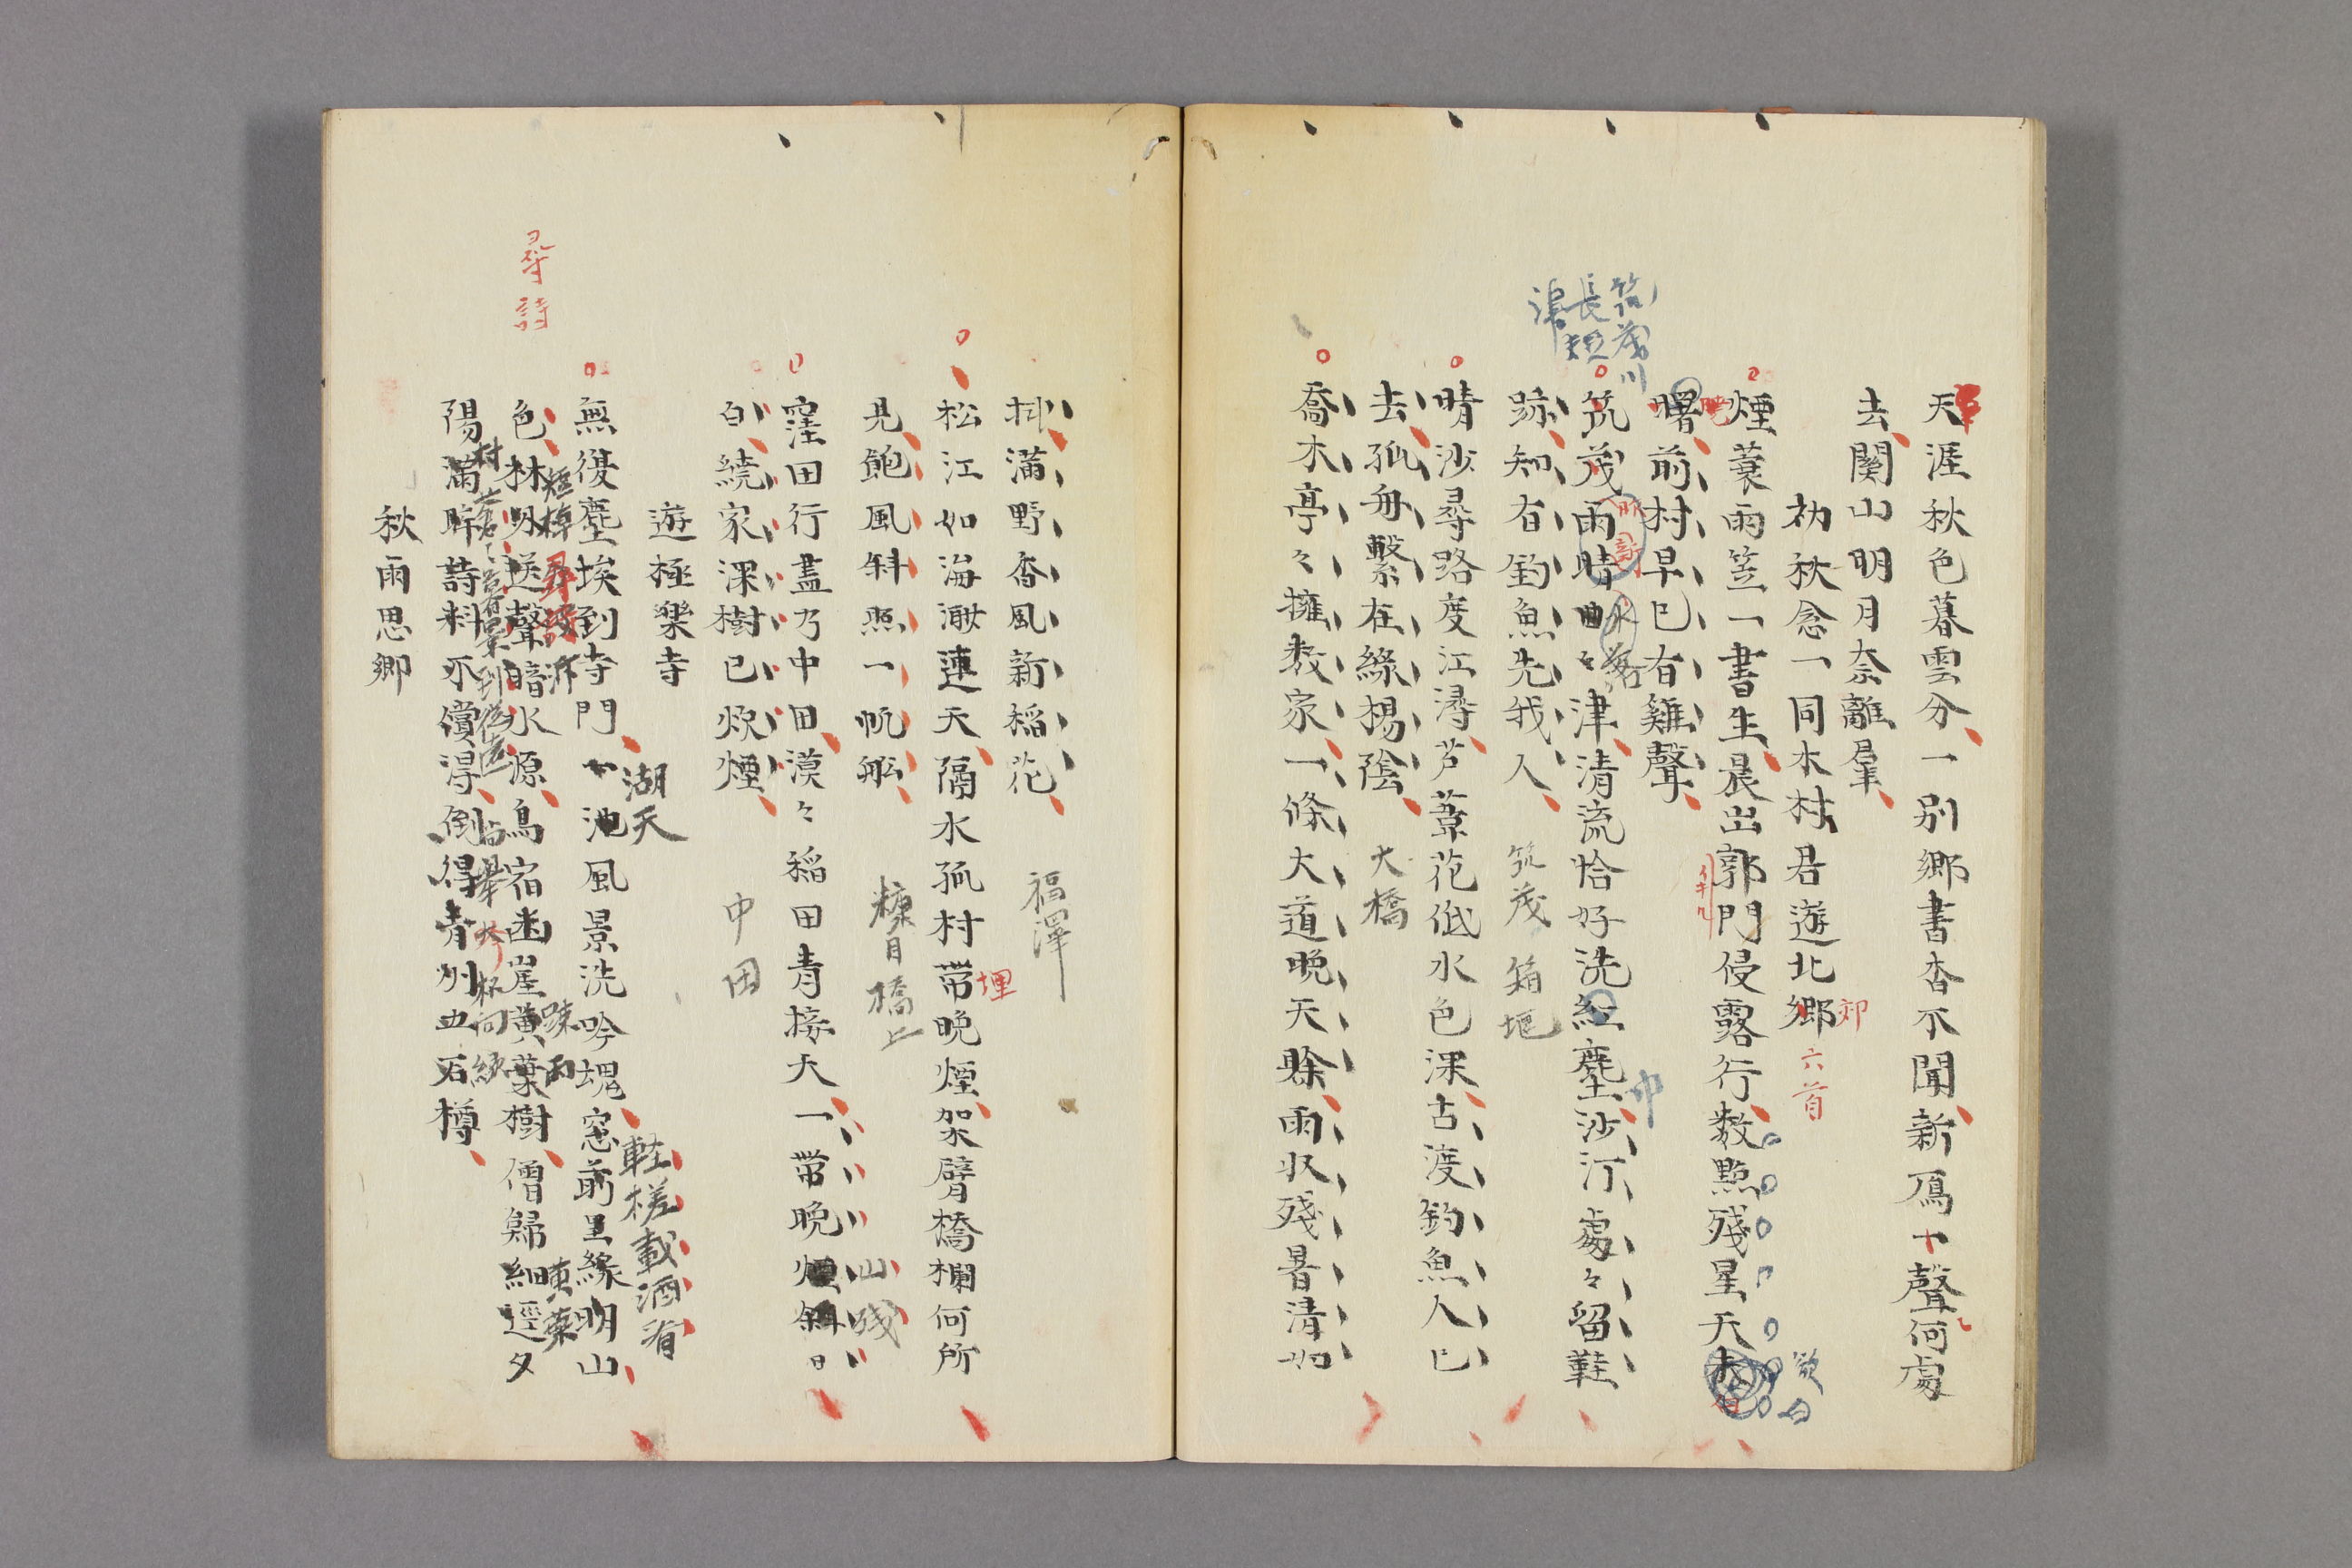 天涯秋色暮雲分一別鄉書杳不聞新鴈一聲何處
去關山明月奈離羣
初秋念一同木村君遊北鄉
郊
六首
煙蓑雨笠一書生晨出郭門侵露行數點殘星天未
欲
曙前村早已有雞聲
曉
筑後川
長短
筑後雨晴曲々津清流恰好洗紅塵沙汀處々留鞋
新
水落
中
跡知有釣魚先我人
筑後 箱
晴沙尋路度江潯芦葦花低水色深古渡釣魚人已
去孤舟繫在綠楊陰
大橋
喬木亭々擁數家一條大道晚天賒雨收殘暑清如
抻滿野香風新稻花
福澤
松江如海澉連天隔水孤村帶晚煙架臂橋欄何所
埋
見飽風斜照一帆船
橋上
窪田行盡乃中田漠々稻田青接天一帶晚煙斜日
山殘
白繞家深樹已炊煙
中田
遊極樂寺
湖天
輕槎載酒肴
無復塵埃到寺門一池風景洗吟塊窓前里緣明山
短棹
尋詩
疎雨
黃葉
尋詩
色林外送聲暗水源鳥宿幽崖黃葉樹僧歸細逕夕
村
陽滿眸詩料不償得倒得青州五石樽
秋雨思鄉